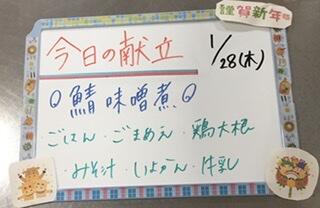 謹賀新年
今日の献立
1/28(木)
鯖味噌煮
ごはん・ごまあえ・鶏大根
・みそ汁・いよかん・牛乳